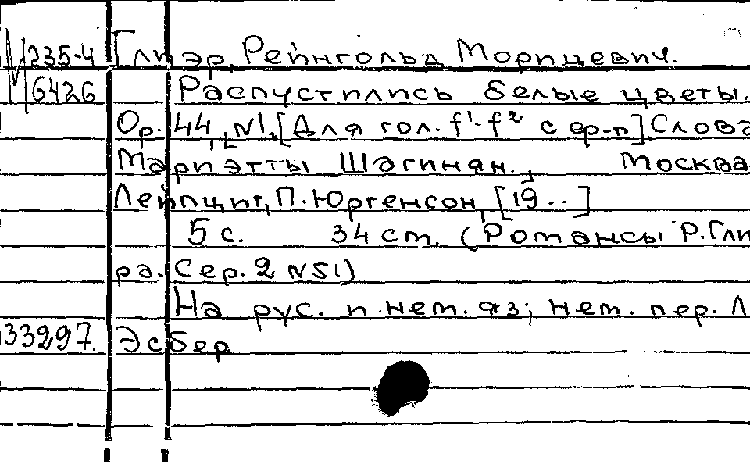 М 235-4 Глиэр, Рейнгольд Морицевич.
6426 Распустились белые цветы.
Op. 44, N1. [Для гол. f¹-f² с ф-п] Слова
Мариэтты Шагинян. Москва
Лейпциг, П. Юргенсон, [19..]
5 с. 34 см. (Романсы Р. Гли
ра. Сер. 2 №51)
На рус. и нем. яз; нем. пер. Л
33297. Эсбер